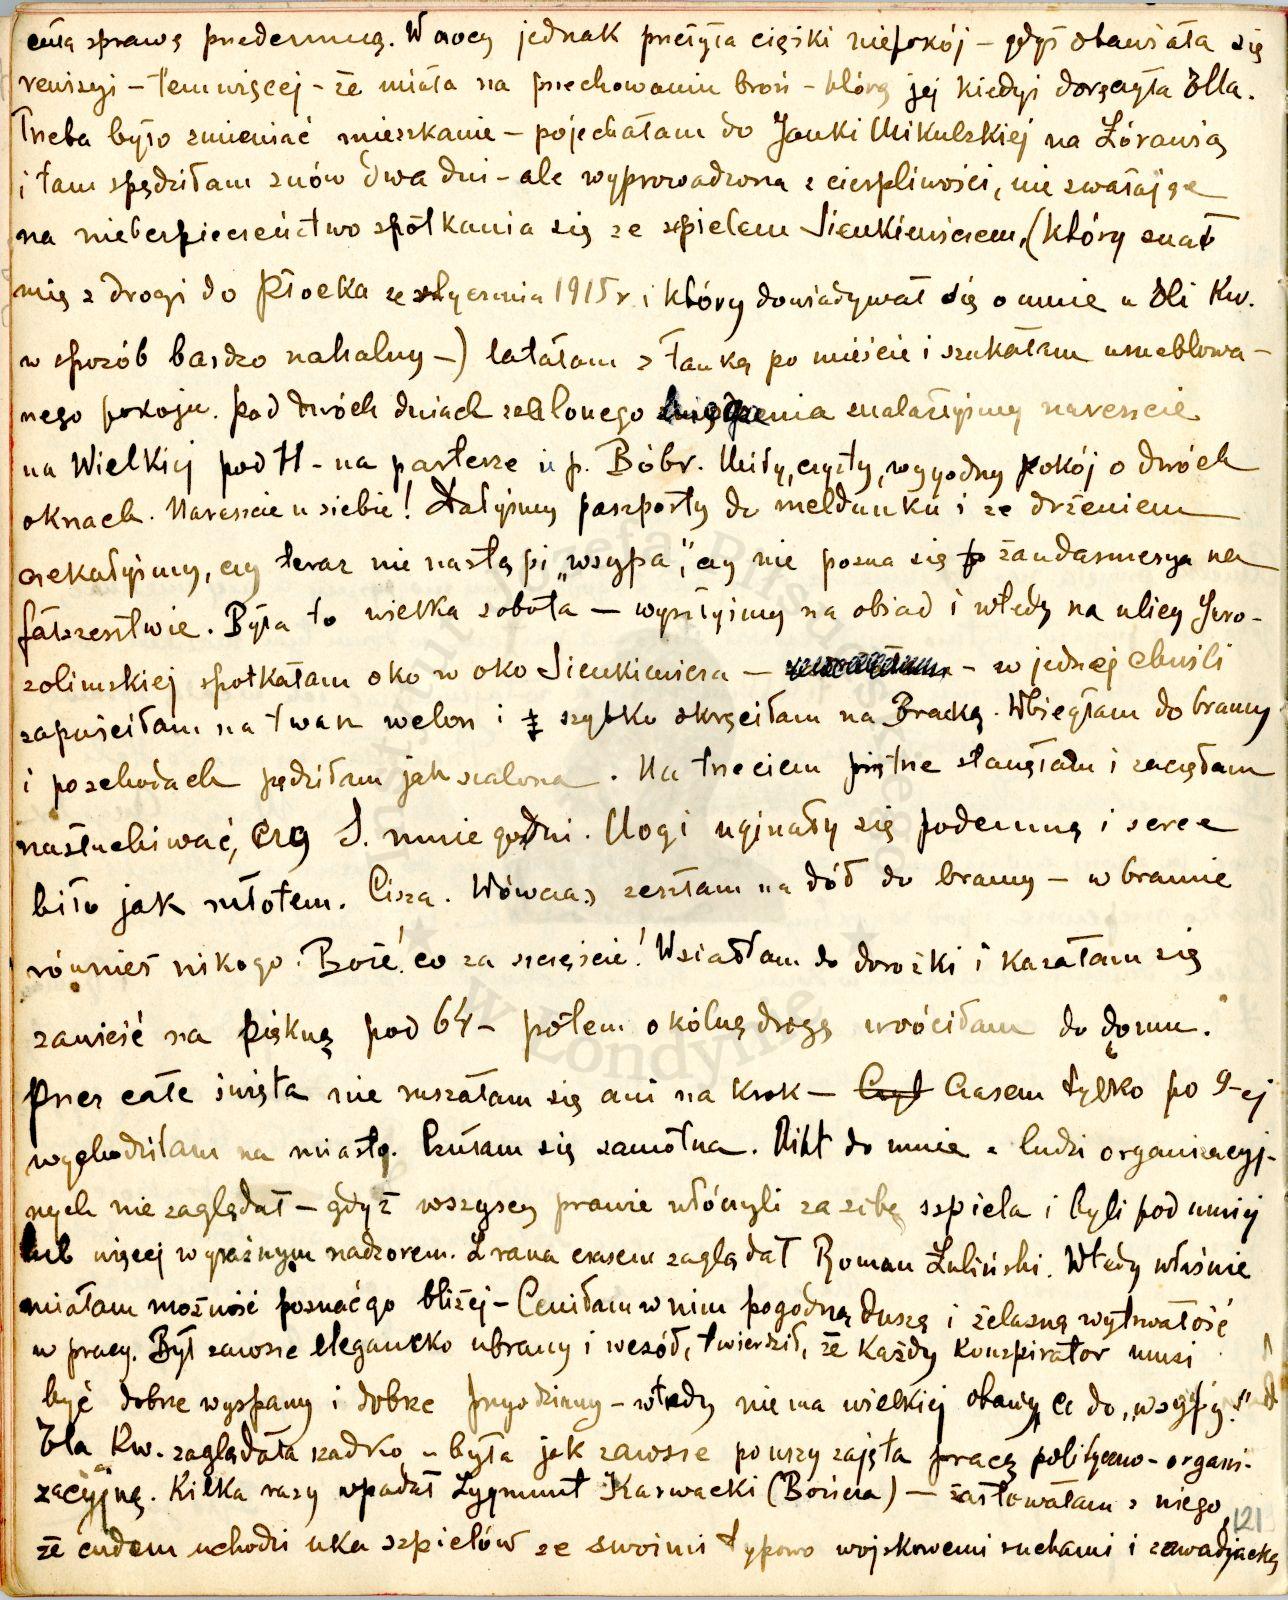 całą sprawę przedemną. W nocy jednak przeżyła ciężki niepokój – gdyż obawiała się
rewizyi – tem więcej – że miała na przechowaniu broń – którą jej kiedyś doręczyła Ola.
Trzeba było zmieniać mieszkanie – pojechałam do Janki Mikulskiej na Żórawią
i tam spędziłam znów dwa dni – ale wyprowadzona z cierpliwości, nie zważając
na niebezpieczeństwo spotkania się ze szpiclem Sienkiewiczem, (który znał
mię z drogi do Płocka ze stycznia 1915 r. i który dowiadywał się o mnie u Oli Kw.
w sposób bardzo nahalny –) latałam z Janką po mieście i szukałam umeblowa–
nego pokoju. Pod dwóch dniach szalonego zmęczenia znalazłyśmy nareszcie
na Wielkiej pod 11 – na parterze u p. Bóbr. Miły, czysty, wygodny pokój o dwóch
oknach. Nareszcie u siebie! Dałyśmy paszporty do meldunku i ze drżeniem
czekałyśmy, czy teraz nie nastąpi „wsypa", czy nie pozna się żandarmerya na
fałszerstwie. Była to wielka sobota – wyszłyśmy na obiad i wtedy na ulicy Jero–
zolimskiej spotkałam oko w oko Sienkiewicza – – w jednej chwili
zapuściłam na twarz welon i szybko skręciłam na Bracką. Wbiegłam do bramy
i po schodach pędziłam jak szalona. Na trzeciem piętrze stanęłam i zaczęłam
nasłuchiwać, czy S. mnie goni. Nogi uginały się podemną i serce
biło jak młotem. Cisza. Wówczas zeszłam na dół do bramy – w bramie
również nikogo. Boże! co za szczęście! Wsiadłam do dorożki i kazałam się
zawieść na Piękną pod 64 – potem okólną drogą wróciłam do domu.
Przez całe święta nie ruszałam się ani na krok – Czyt Czasem tylko po 9-ej
wychodziłam na miasto. Czułam się samotna. Nikt do mnie z ludzi organizacyj–
nych nie zaglądał – gdyż wszyscy prawie włóczyli za sobą szpicla i byli pod mniej
lub więcej wyraźnym nadzorem. Z rana czasem zaglądał Roman Żuliński. Wtedy właśnie
miałam możność poznać go bliżej – Ceniłam w nim pogodną duszę i żelazną wytrwałość
w pracy. Był zawsze elegancko ubrany i wesół, twierdził, że każdy konspirator musi
być dobrze wyspany i dobrze przyodziany – wtedy niema wielkiej obawy co do „wsypy."
Ola Kw. zaglądała rzadko – była jak zawsze po uszy zajęta pracą polityczno-organi–
zacyjną. Kilka razy wpadał Zygmunt Karwacki (Bończa) – żartowałam z niego,
że cudem uchodzi oka szpiclów ze swoimi typowo wojskowemi ruchami i zawadjacką
121